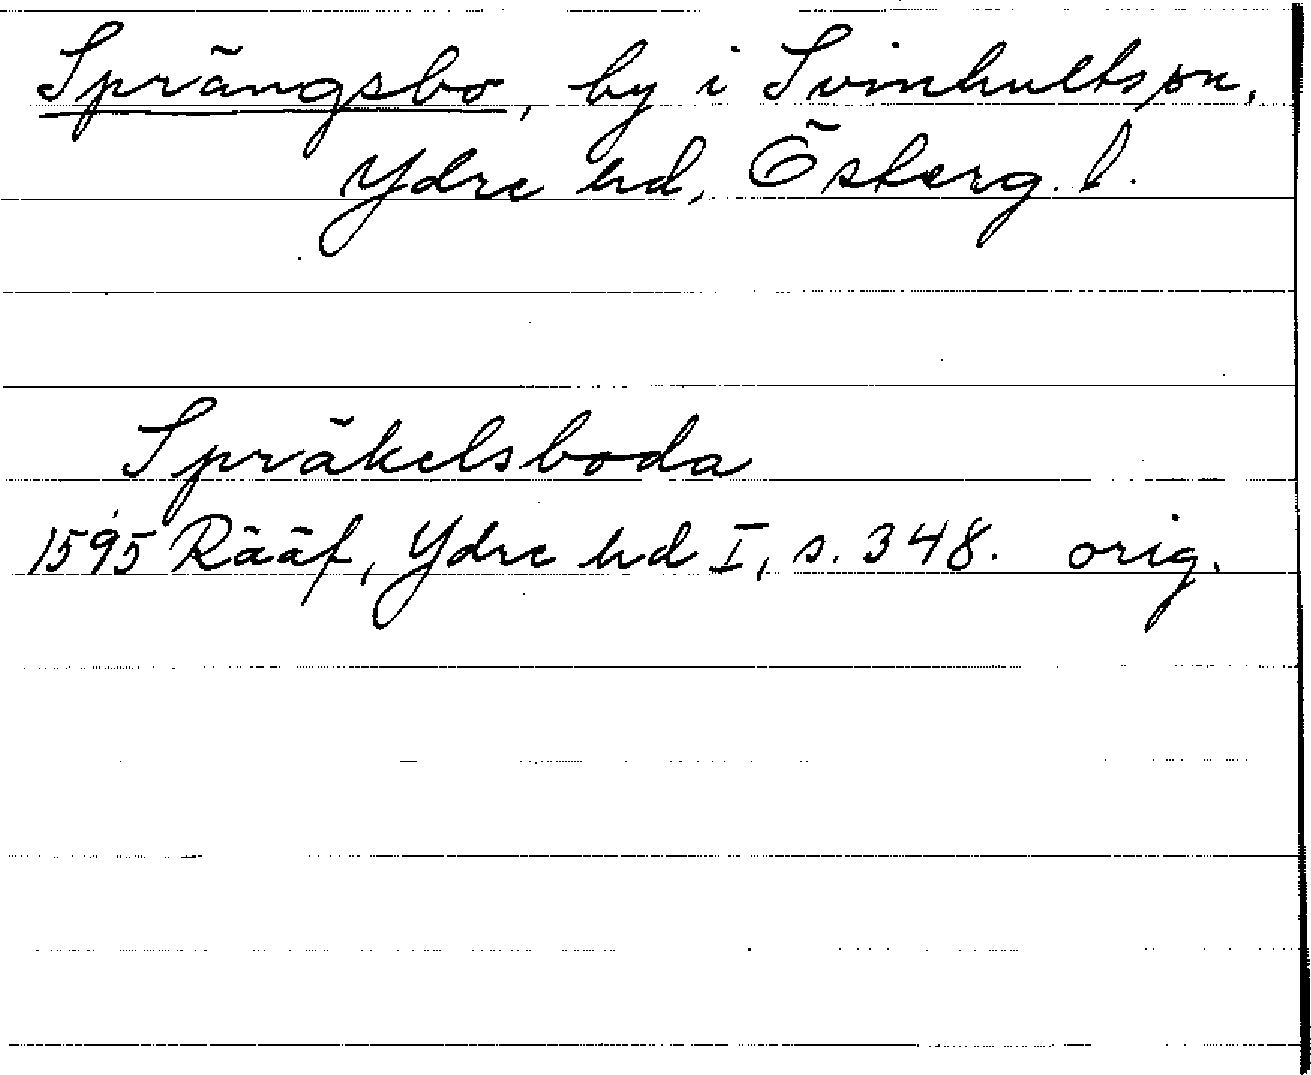 Sprängsbo, by i Svinhults sn,
Ydre hd, Österg. l.
Språkelsboda
1595 Rääf, Ydre hd I, s. 348. orig.